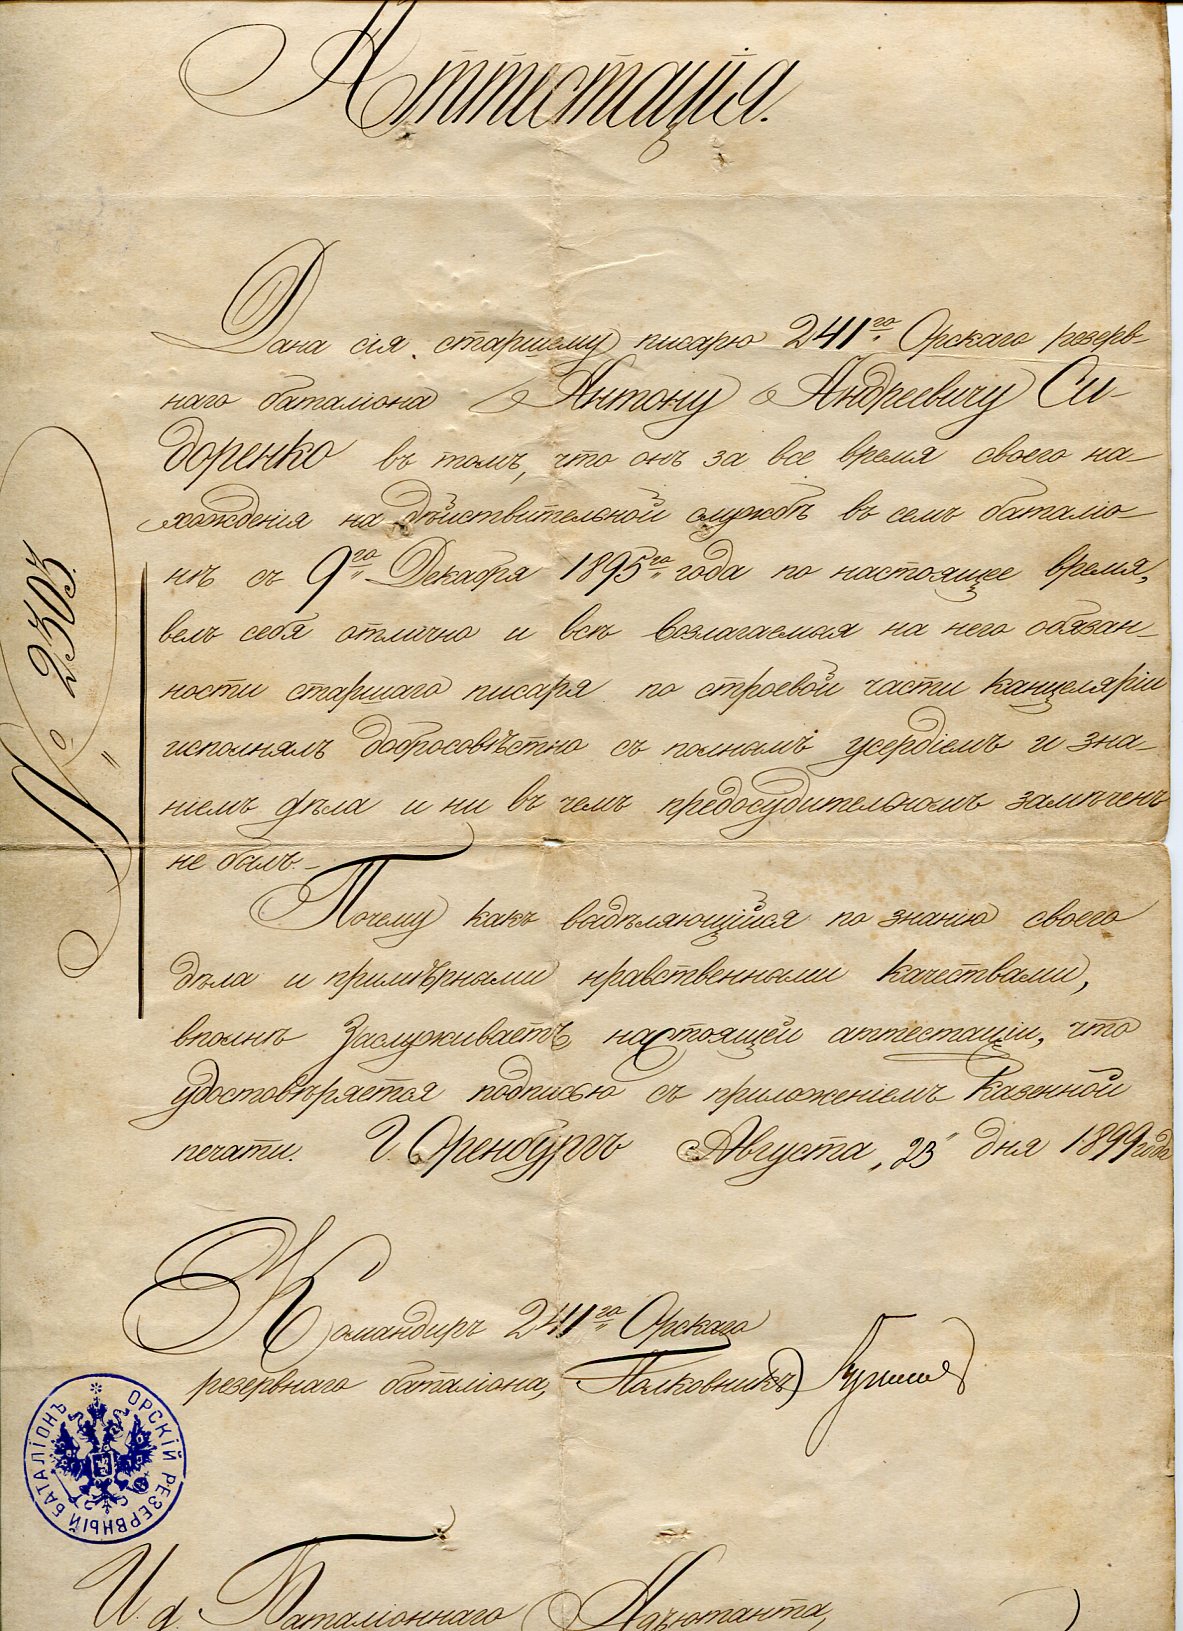 Аттестація.
Дана сія старшему писарю 241го Орскаго резерв-
наго баталіона Антону Андреевичу Си-
доренко въ томъ, что онъ за все время своего на-
хожденія на дѣйствительной службѣ въ семъ баталіо-
нѣ съ 9го Декабря 1895го года по настоящее время,
велъ себя отлично и всѣ возлагаемыя на него обязан-
ности старшаго писаря по строевой части канцеляріи
исполнялъ добросовѣстно съ полнымъ усердіемъ и зна-
ніемъ дѣла и ни въ чемъ предосудительномъ замѣченъ
не былъ.
Почему какъ выдѣляющійся по знанію своего
дѣла и примѣрными нравственными качествами,
вполнѣ заслуживаетъ настоящей аттестаціи, что
удостовѣряется подписью съ приложеніемъ казенной
печати. Г. Оренбургъ Августа, 23 дня 1899 года
№ 2303.
Командиръ 241го Орскаго
резервнаго баталіона, Полковникъ
ОРСКІЙ РЕЗЕРВНЫЙ БАТАЛІОНЪ
И. д. Баталіоннаго Адъютанта,